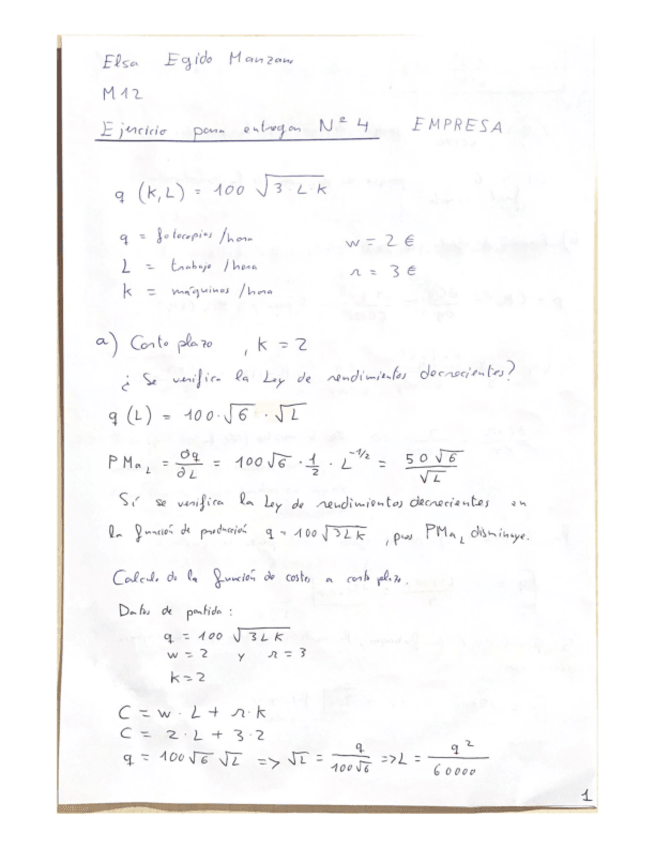 Elsa Egido Manzano
M12
Ejercicio para entregar Nº 4 EMPRESA
q (k,L) = 100 √(3·L·k)
q = fotocopias /hora w = 2 €
L = trabajo /hora r = 3 €
k = máquinas /hora
a) Corto plazo , k = 2
¿ Se verifica la Ley de rendimientos decrecientes?
q (L) = 100·√6 · √L
PMa_L = ∂q/∂L = 100√6 · 1/2 · L^(-1/2) = 50√6/√L
Sí se verifica la Ley de rendimientos decrecientes en
la función de producción q = 100√(3Lk) , pues PMa_L disminuye.
Calculo de la función de costes a corto plazo.
Datos de partida :
q = 100 √(3Lk)
w = 2 y r = 3
k = 2
C = w · L + r · k
C = 2 · L + 3 · 2
q = 100√6 √L => √L = q/(100√6) => L = q²/60000
1